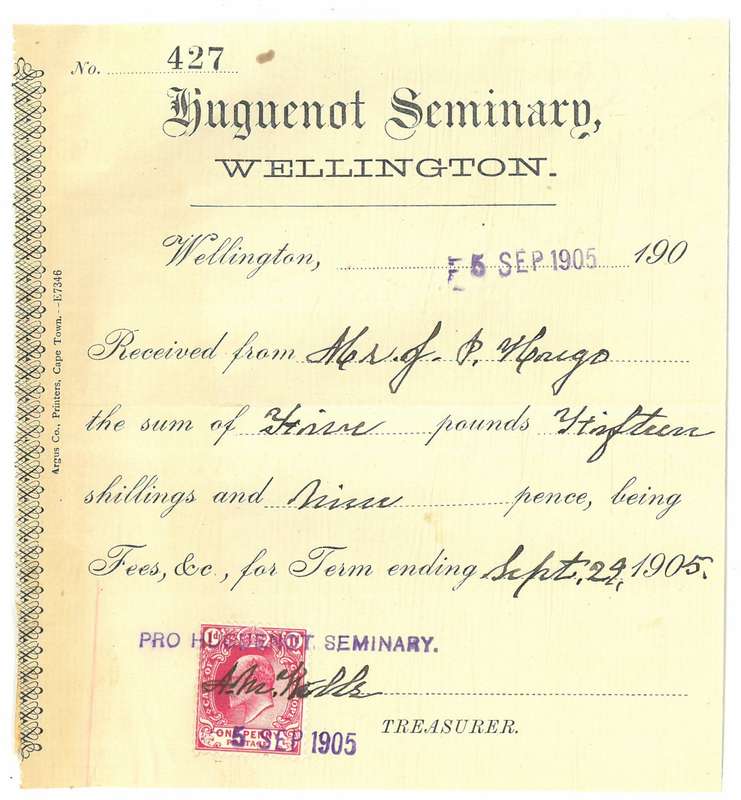 No. 427
Huguenot Seminary,
WELLINGTON.
Wellington, 5 SEP 1905 190
Received from Mr. J. P. Hugo
the sum of Five pounds Fifteen
shillings and Nine pence, being
Fees, &c., for Term ending Sept. 29, 1905.
PRO HUGUENOT SEMINARY.
1d 1d
CAPE OF HOPE
A. M. Wells
ONE PENNY
POSTAGE
5 SEP 1905
TREASURER.
Argus Co., Printers, Cape Town.—E7346